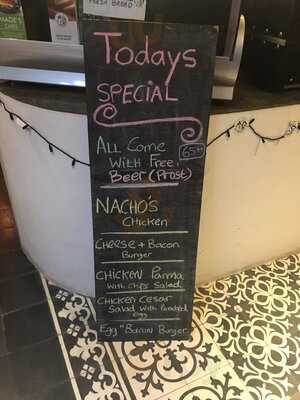 FRESH BREAD
MADE'S
Todays
SPECIAL
ALL Come
With Free
Beer (Prost)
NACHO'S
Chicken
Cheese + Bacon
Burger
CHICKEN Parma
With chips Salad
Chicken Cesar
Salad With Poached
egg
Egg "Bacon Burger